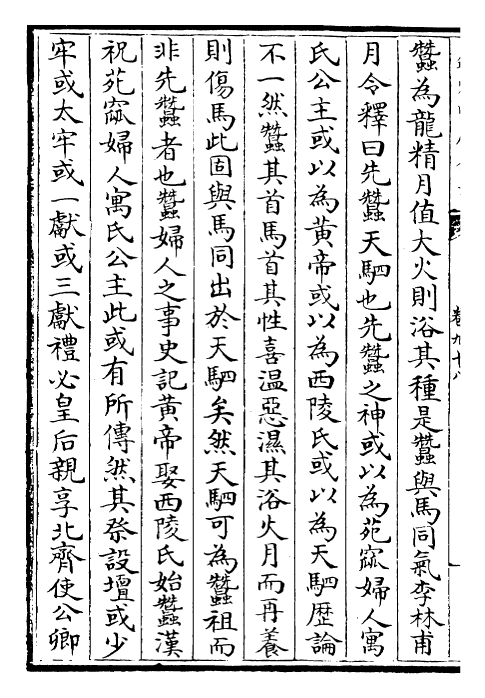 蠶為龍精月值大火則浴其種是蠶與馬同氣李林甫
月令釋曰先蠶天駟也先蠶之神或以為苑窳婦人寓
氏公主或以為黃帝或以為西陵氏或以為天駟歴論
不一然蠶其首馬首其性喜温惡濕其浴火月而再養
則傷馬此固與馬同出於天駟矣然天駟可為蠶祖而
非先蠶者也蠶婦人之事史記黃帝娶西陵氏始蠶漢
祝苑窳婦人寓氏公主此或有所傳然其祭設壇或少
牢或太牢或一獻或三獻禮必皇后親享北齊使公卿
卷九十八